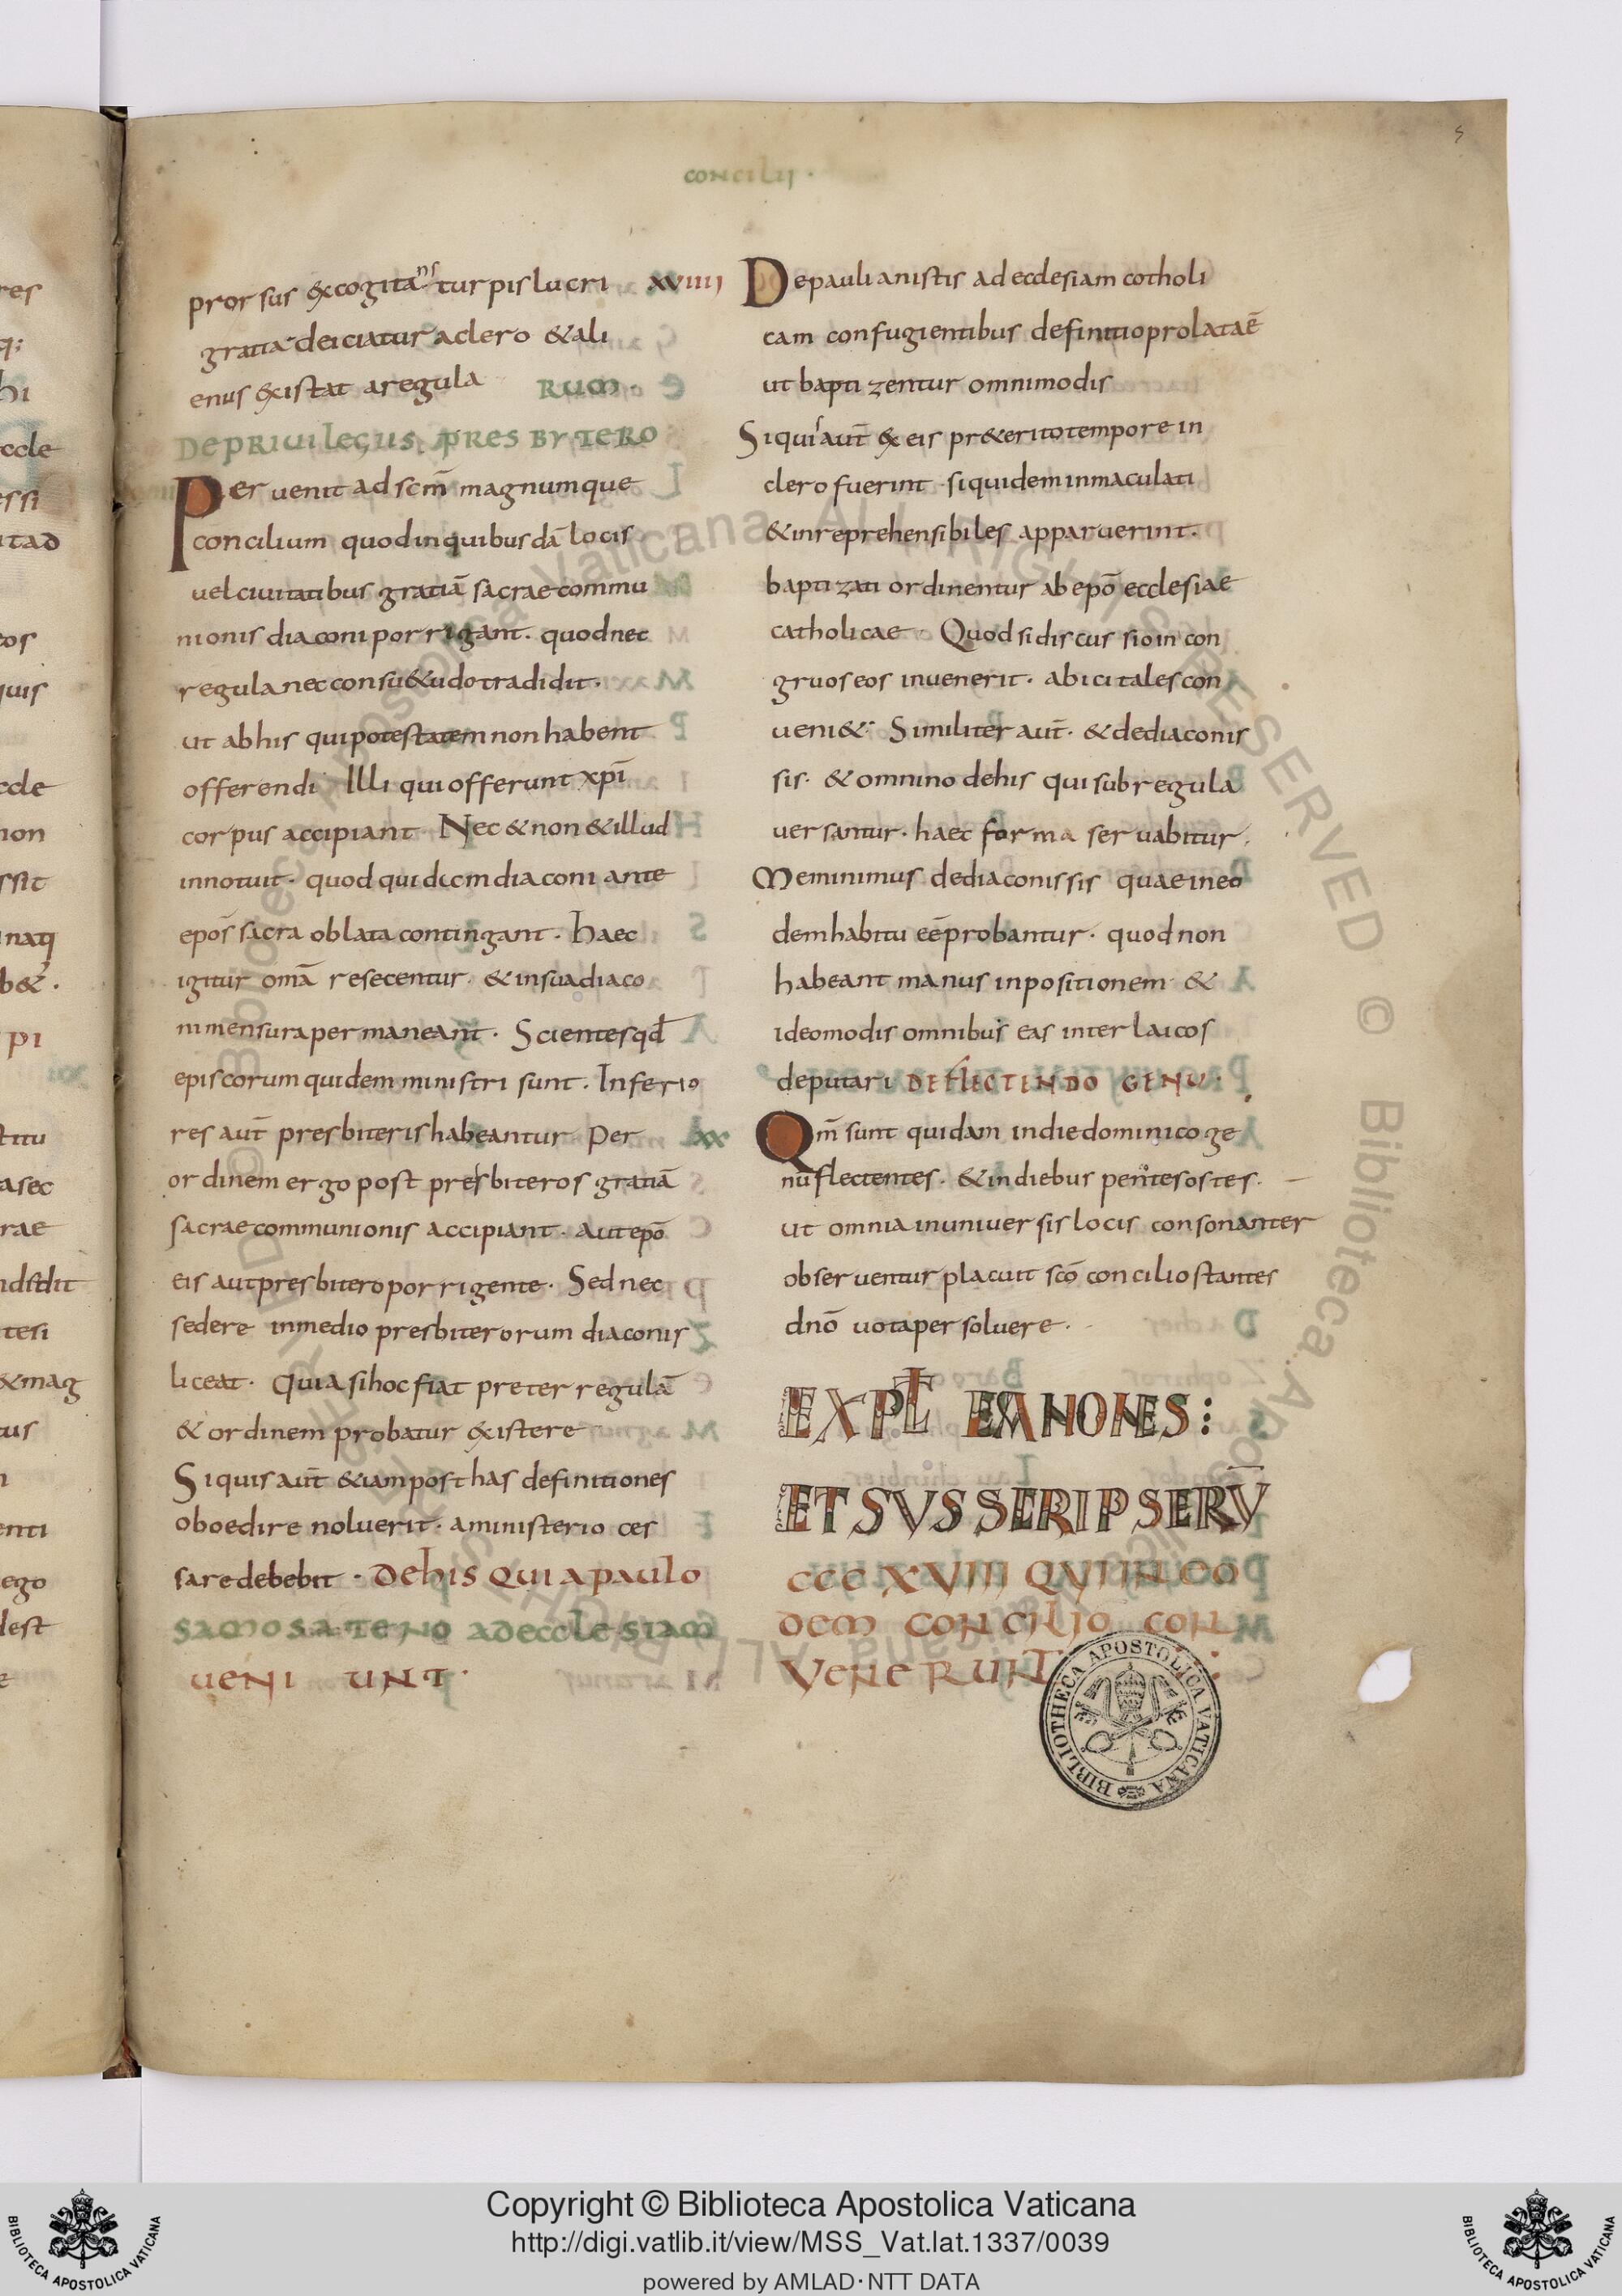 5
CONCILII ·
prorsus excogitans turpis lucri
gratia deiciatur a clero & ali
enus existat a regula RUM ·
DE PRIUILEGIIS PRESBYTERO
Peruenit ad scm̄ magnumque
concilium quod in quibusdā locis
uel ciuitatibus gratiā sacrae commu
nionis diaconi porrigant · quod nec
regula nec consu&udo tradidit ·
ut ab his qui potestatem non habent
offerendi · Illi qui offerunt xpī
corpus accipiant · Nec & non & illud
innotuit · quod quidem diaconi ante
epōs sacra oblata contingant · haec
igitur omā resecentur · & in sua diaco
ni mensura permaneant · Scientes qđ
episcorum quidem ministri sunt · Inferio
res aut̄ presbiteris habeantur Per
ordinem ergo post presbiteros gratiā
sacrae communionis accipiant · Aut epō
eis aut presbitero porrigente · Sed nec
sedere in medio presbiterorum diaconis
liceat · Quia si hoc fiat preter regulā
& ordinem probatur existere
Si quis aut̄ &iam post has definitiones
oboedire noluerit · a ministerio ces
sare debebit · DE HIS QUI A PAULO
SAMOSATENO AD ECCLESIAM
UENI UNT ·
XVIIII De paulianistis ad ecclesiam cotholi
cam confugientibus definitio prolata ē
ut baptizentur omnimodis
Si qui aut̄ ex eis pr&erito tempore in
clero fuerint · siquidem inmaculati
& inreprehensibiles apparuerint ·
baptizati ordinentur ab epō ecclesiae
catholicae · Quod si discussio incon
gruos eos inuenerit · abici tales con
ueni& · Similiter aut̄ · & de diaconis
sis · & omnino de his qui sub regula
uersantur · haec forma seruabitur ·
Meminimus de diaconissis quae in eo
dem habitu eē probantur · quod non
habeant manus inpositionem · &
ideo modis omnibus eas inter laicos
deputari DE FLECTENDO GENU :
XX Qm̄ sunt quidam in die dominico ge
nu flectentes · & in diebus pentesostes ·
ut omnia in uniuersis locis consonanter
obseruentur placuit scō concilio stantes
dnō uota persoluere ·
EXPL̄ CANONES :
ET SVSSERIPSERV̄
CCC XVIII QVI IN EO
DEM CONCILIO CON
VENERUNT :
BIBLIOTHECA APOSTOLICA VATICANA
Copyright © Biblioteca Apostolica Vaticana
http://digi.vatlib.it/view/MSS_Vat.lat.1337/0039
powered by AMLAD·NTT DATA
BIBLIOTECA APOSTOLICA VATICANA
BIBLIOTECA APOSTOLICA VATICANA